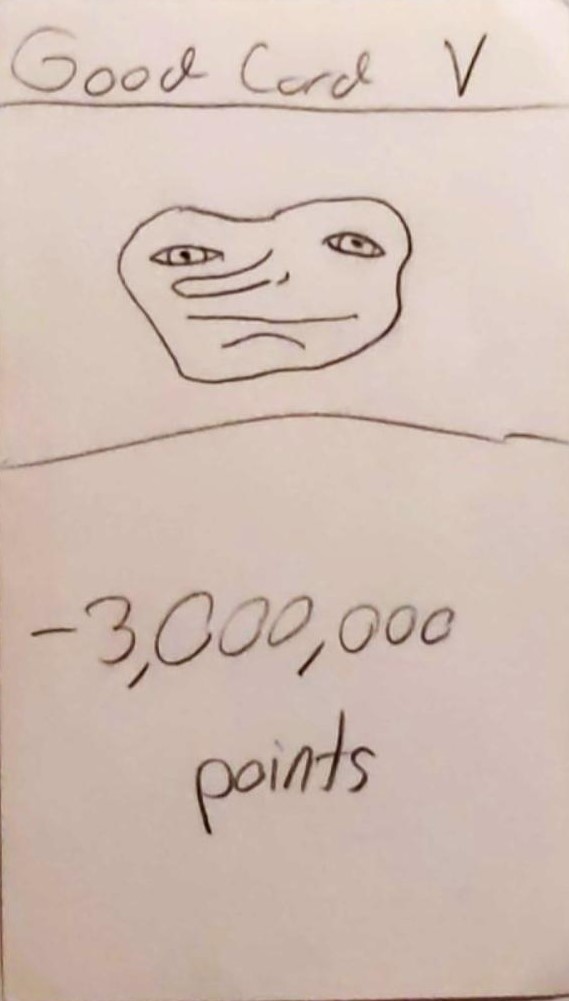 Good Card V
-3,000,000
points